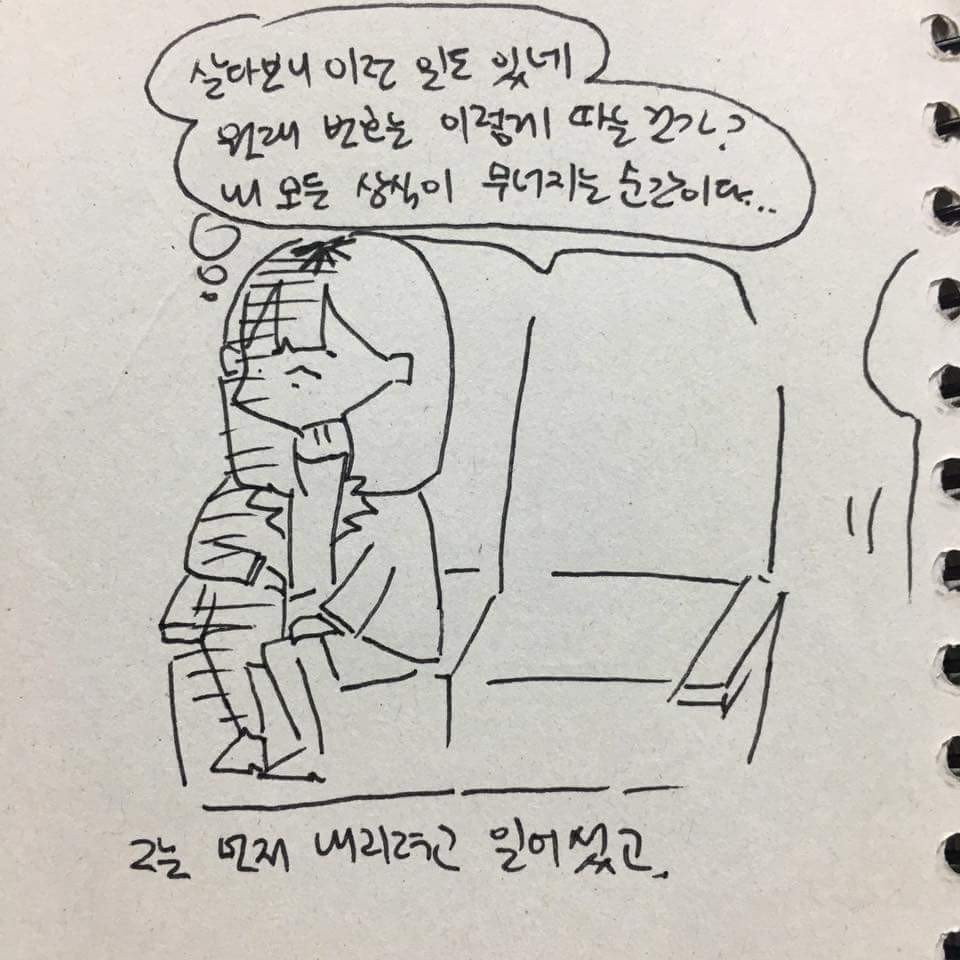 살다보니 이런 일도 있네
원래 번호는 이렇게 따는 건가?
내 모든 상식이 무너지는 순간이다...
그는 먼저 내리려고 일어섰고.